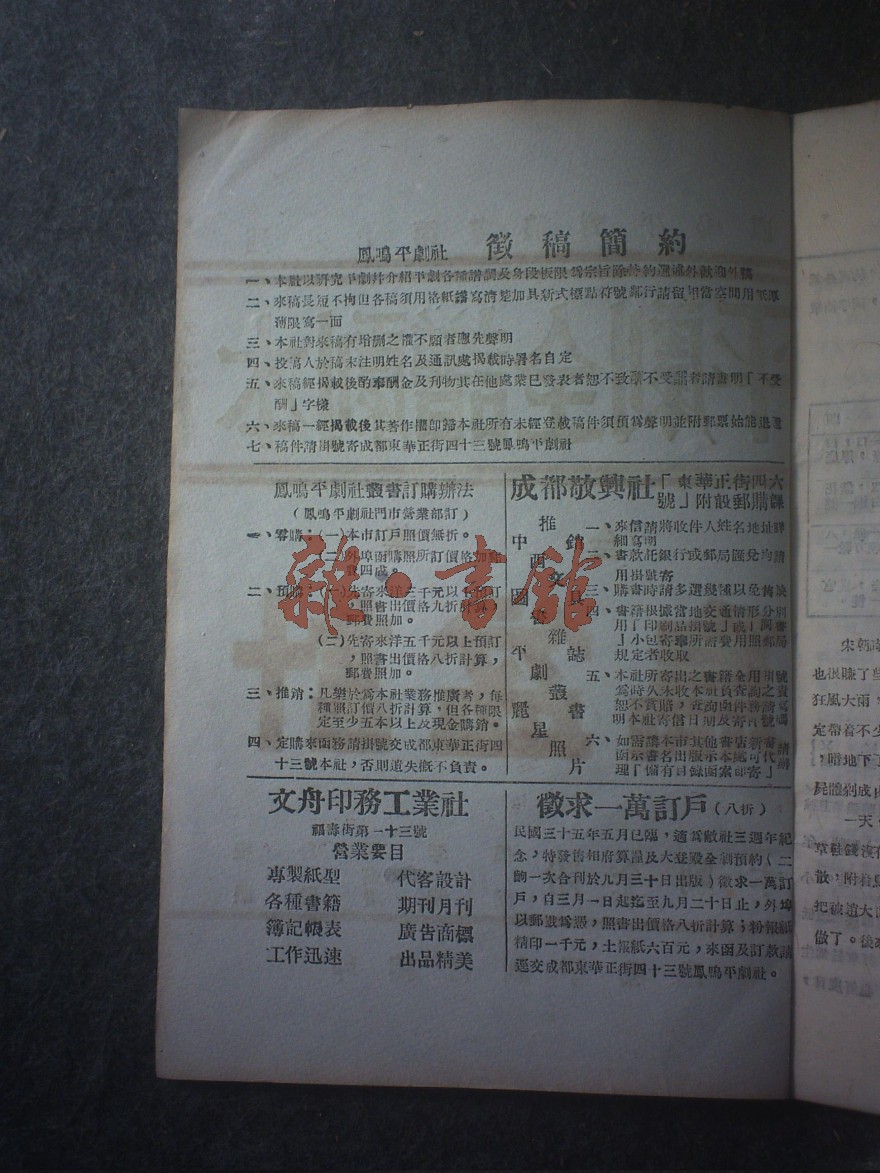 鳳鳴平劇社 徵稿簡約
一、本社以研究平劇幷介紹平劇各種譜調及身段板限爲宗旨除特約選述外歡迎外稿
二、來稿長短不拘但各稿須用格紙謄寫清楚加具新式標點符號鄰行請留相當空間用
薄限寫一面
三、本社對來稿有增刪之權不願者應先聲明
四、投稿人於稿末注明姓名及通訊處揭載時署名自定
五、來稿經揭載後酌奉酬金及刊物其在他處業已發表者恕不致酬不受酬者請書明「不受
酬」字樣
六、來稿一經揭載後其著作權卽歸本社所有未經登載稿件須預爲聲明並附郵票始能退還
七、稿件請掛號寄成都東華正街四十三號鳳鳴平劇社
鳳鳴平劇社叢書訂購辦法
(鳳鳴平劇社門市營業部訂)
一、零購:(一)本市訂戶照價無折。
(二)外埠函購照所訂價格加郵
費四成。
二、預購:(一)先寄來洋三千元以上預訂
,照書出價格九折計算,
郵費照加。
(二)先寄來洋五千元以上預訂
,照書出價格八折計算,
郵費照加。
三、推消:凡樂於爲本社業務推廣者,每
種照訂價八折計算,但各種限
定至少五本以上及現金購銷。
四、定購來函務請掛號交成都東華正街四
十三號本社,否則遺失概不負責。
成都敬興社「東華正街四六
號」附設郵購課
推銷
中西文具
圖書雜誌
平劇叢書
麗星照片
一、來信請將收件人姓名地址詳
細寫明
二、書款託銀行或郵局匯兌均請
用掛號寄
三、購書時請多選幾種以免
四、書籍根據當地交通情形分別
用「印刷品掛號」或「
」小包寄奉所需費用照郵局
規定者收取
五、本社所寄出之書籍全用掛號
爲時久未收本社負查詢之責
恕不賞賠,查詢函件務請寫
明本社寄信日期及寄
六、如需購本市其他書店新書
函示書名出版示本處可代
理「備有目錄函索卽寄」
文舟印務工業社
福壽街第一十三號
營業要目
專製紙型 代客設計
各種書籍 期刊月刊
簿記帳表 廣告商標
工作迅速 出品精美
徵求一萬訂戶(八折)
民國三十五年五月已臨,適爲敝社三週年紀
念,特發售相府算糧及大登殿全劇預約(二
齣一次合刊於九月三十日出版)徵求一萬訂
戶,自三月一日起迄至九月二十日止,外埠
以郵戳爲憑,照書出價格八折計算;粉報紙
精印一千元,土報紙六百元,來函及訂款請
逕交成都東華正街四十三號鳳鳴平劇社。
雜·書館
也很賺了
狂風大雨,
定帶着不少
,暗地下了
屍體剝成
一天,
草鞋錢沒
散,附
把被遺大
做了。後